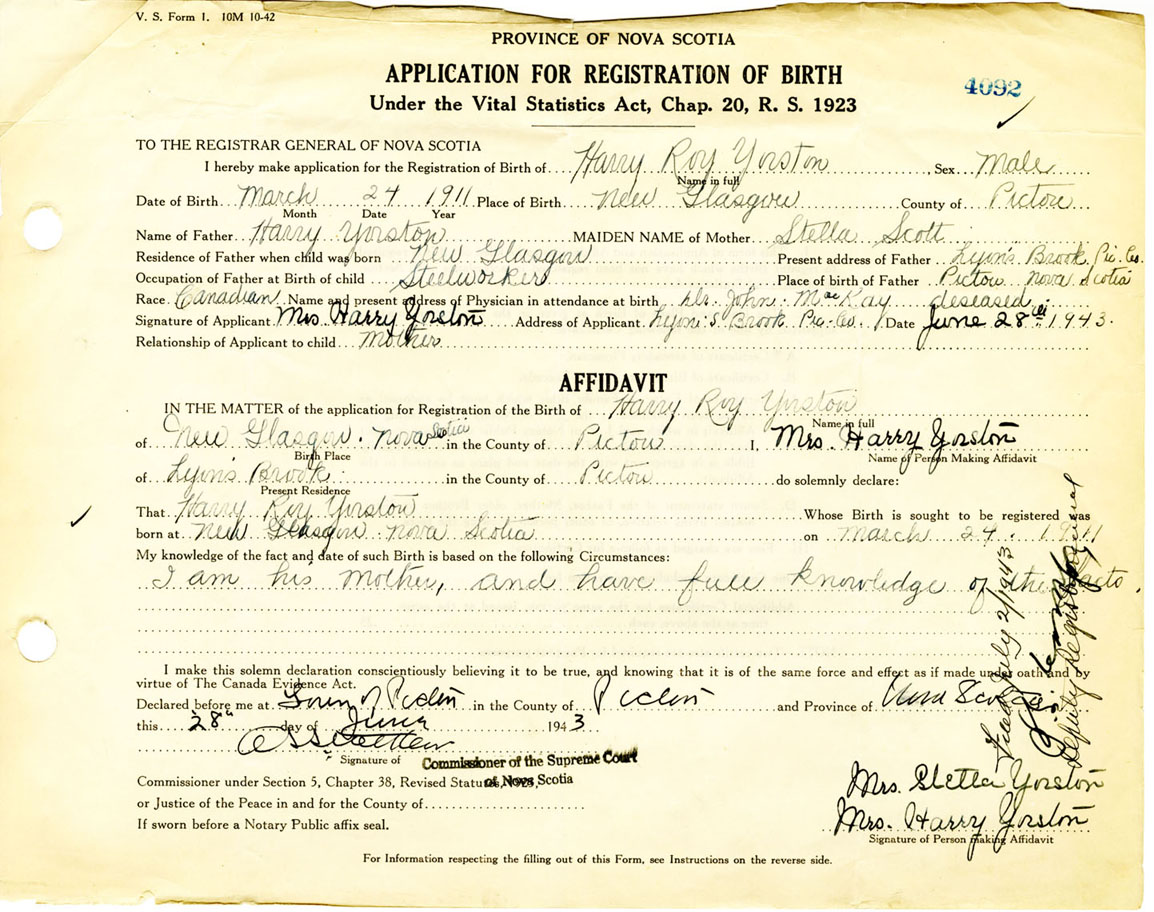 V. S. Form 1. 10M 10-42
PROVINCE OF NOVA SCOTIA
APPLICATION FOR REGISTRATION OF BIRTH
4092
Under the Vital Statistics Act, Chap. 20, R. S. 1923
TO THE REGISTRAR GENERAL OF NOVA SCOTIA
I hereby make application for the Registration of Birth of Harry Roy Yorston, Sex Male
Name in full
Date of Birth March 24 1911 Place of Birth New Glasgow County of Pictou
Month Date Year
Name of Father Harry Yorston MAIDEN NAME of Mother Stella Scott
Residence of Father when child was born New Glasgow Present address of Father Lyon's Brook Pic. Co.
Occupation of Father at Birth of child Steelworker Place of birth of Father Pictou Nova Scotia
Race Canadian Name and present address of Physician in attendance at birth Dr. John MacKay deseased
Signature of Applicant Mrs Harry Yorston Address of Applicant Lyon's Brook Pic. Co. Date June 28th 1943.
Relationship of Applicant to child Mother
AFFIDAVIT
IN THE MATTER of the application for Registration of the Birth of Harry Roy Yorston
Name in full
of New Glasgow. Nova Scotia in the County of Pictou I, Mrs. Harry Yorston
Birth Place Name of Person Making Affidavit
of Lyon's Brook in the County of Pictou do solemnly declare:
Present Residence
That Harry Roy Yorston Whose Birth is sought to be registered was
born at New Glasgow Nova Scotia on March 24. 1911
My knowledge of the fact and date of such Birth is based on the following Circumstances:
I am his mother, and have full knowledge of the facts.
I make this solemn declaration conscientiously believing it to be true, and knowing that it is of the same force and effect as if made under oath and by
virtue of The Canada Evidence Act.
Declared before me at Town of Pictou in the County of Pictou and Province of Nova Scotia
this 28th day of June 1943
Signature of Commissioner of the Supreme Court
of Nova Scotia
Commissioner under Section 5, Chapter 38, Revised Statutes, 1923,
or Justice of the Peace in and for the County of
If sworn before a Notary Public affix seal.
Mrs. Stella Yorston
Mrs. Harry Yorston
Signature of Person making Affidavit
For Information respecting the filling out of this Form, see Instructions on the reverse side.
Filed July 2/1943
Deputy Registrar General